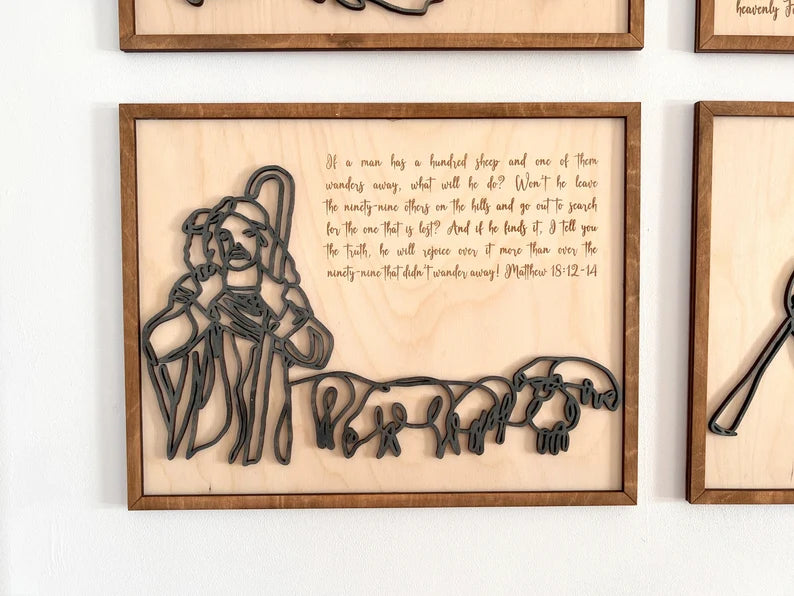 heavenly
If a man has a hundred sheep and one of them
wanders away, what will he do? Won't he leave
the ninety-nine others on the hills and go out to search
for the one that is lost? And if he finds it, I tell you
the truth, he will rejoice over it more than over the
ninety-nine that didn't wander away! Matthew 18:12-14